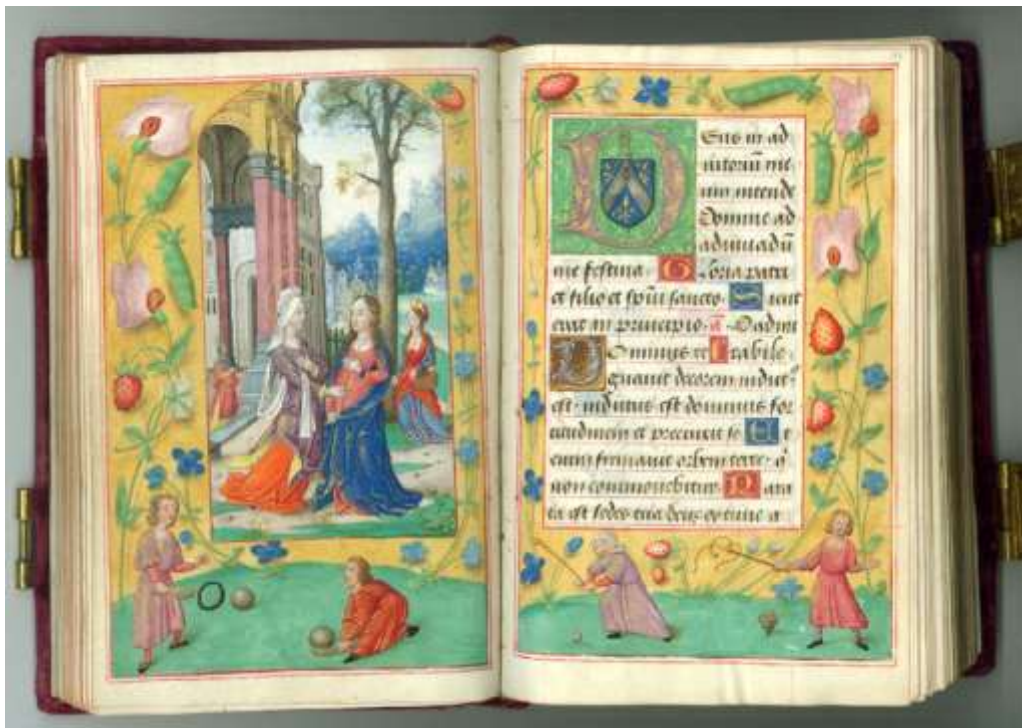 Deus in ad
iutoriū me
um intende
Domine ad
adiuuādū
me festina. Gloria patri
et filio et spūi sancto. Sicut
erat in principio. a Dadmi
Dominus re rabile
gnauit decorem indut⁹
est. indutus est dominus for
titudinem et precinxit se Et
enim firmauit orbem terre. q̄
non commouebitur. Para
ta est sedes tua deus ex tunc a